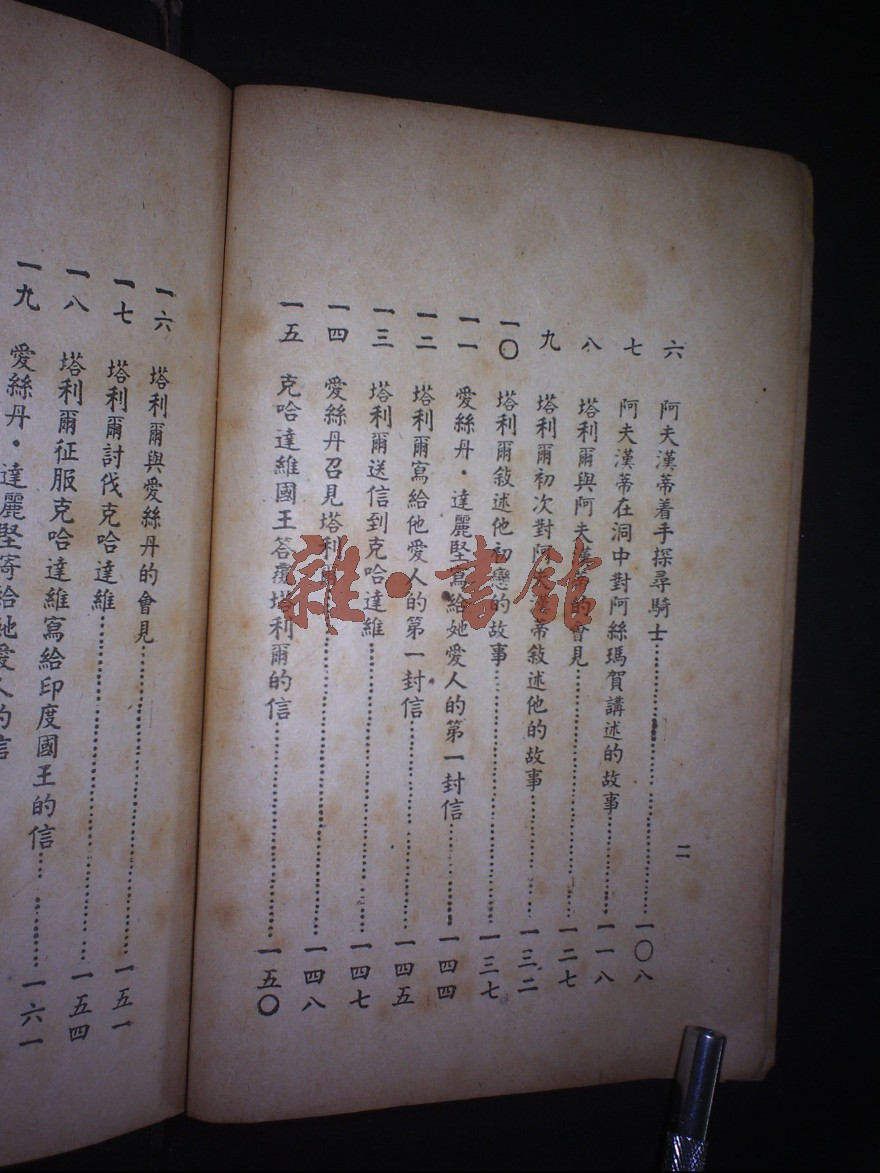 六　阿夫漢蒂着手探尋騎士……一〇八
七　阿夫漢蒂在洞中對阿絲瑪賀講述的故事……一一八
八　塔利爾與阿夫漢蒂的會見……一二七
九　塔利爾初次對阿夫漢蒂敍述他的故事……一三二
一〇　塔利爾敍述他初戀的故事……一三七
一一　愛絲丹・達麗堅寫給她愛人的第一封信……一四四
一二　塔利爾寫給他愛人的第一封信……一四五
一三　塔利爾送信到克哈達維……一四七
一四　愛絲丹召見塔利爾……一四八
一五　克哈達維國王答覆塔利爾的信……一五〇
二
一六　塔利爾與愛絲丹的會見……一五一
一七　塔利爾討伐克哈達維……一五四
一八　塔利爾征服克哈達維寫給印度國王的信……一六一
一九　愛絲丹・達麗堅寄給她愛人的信
雜・書館